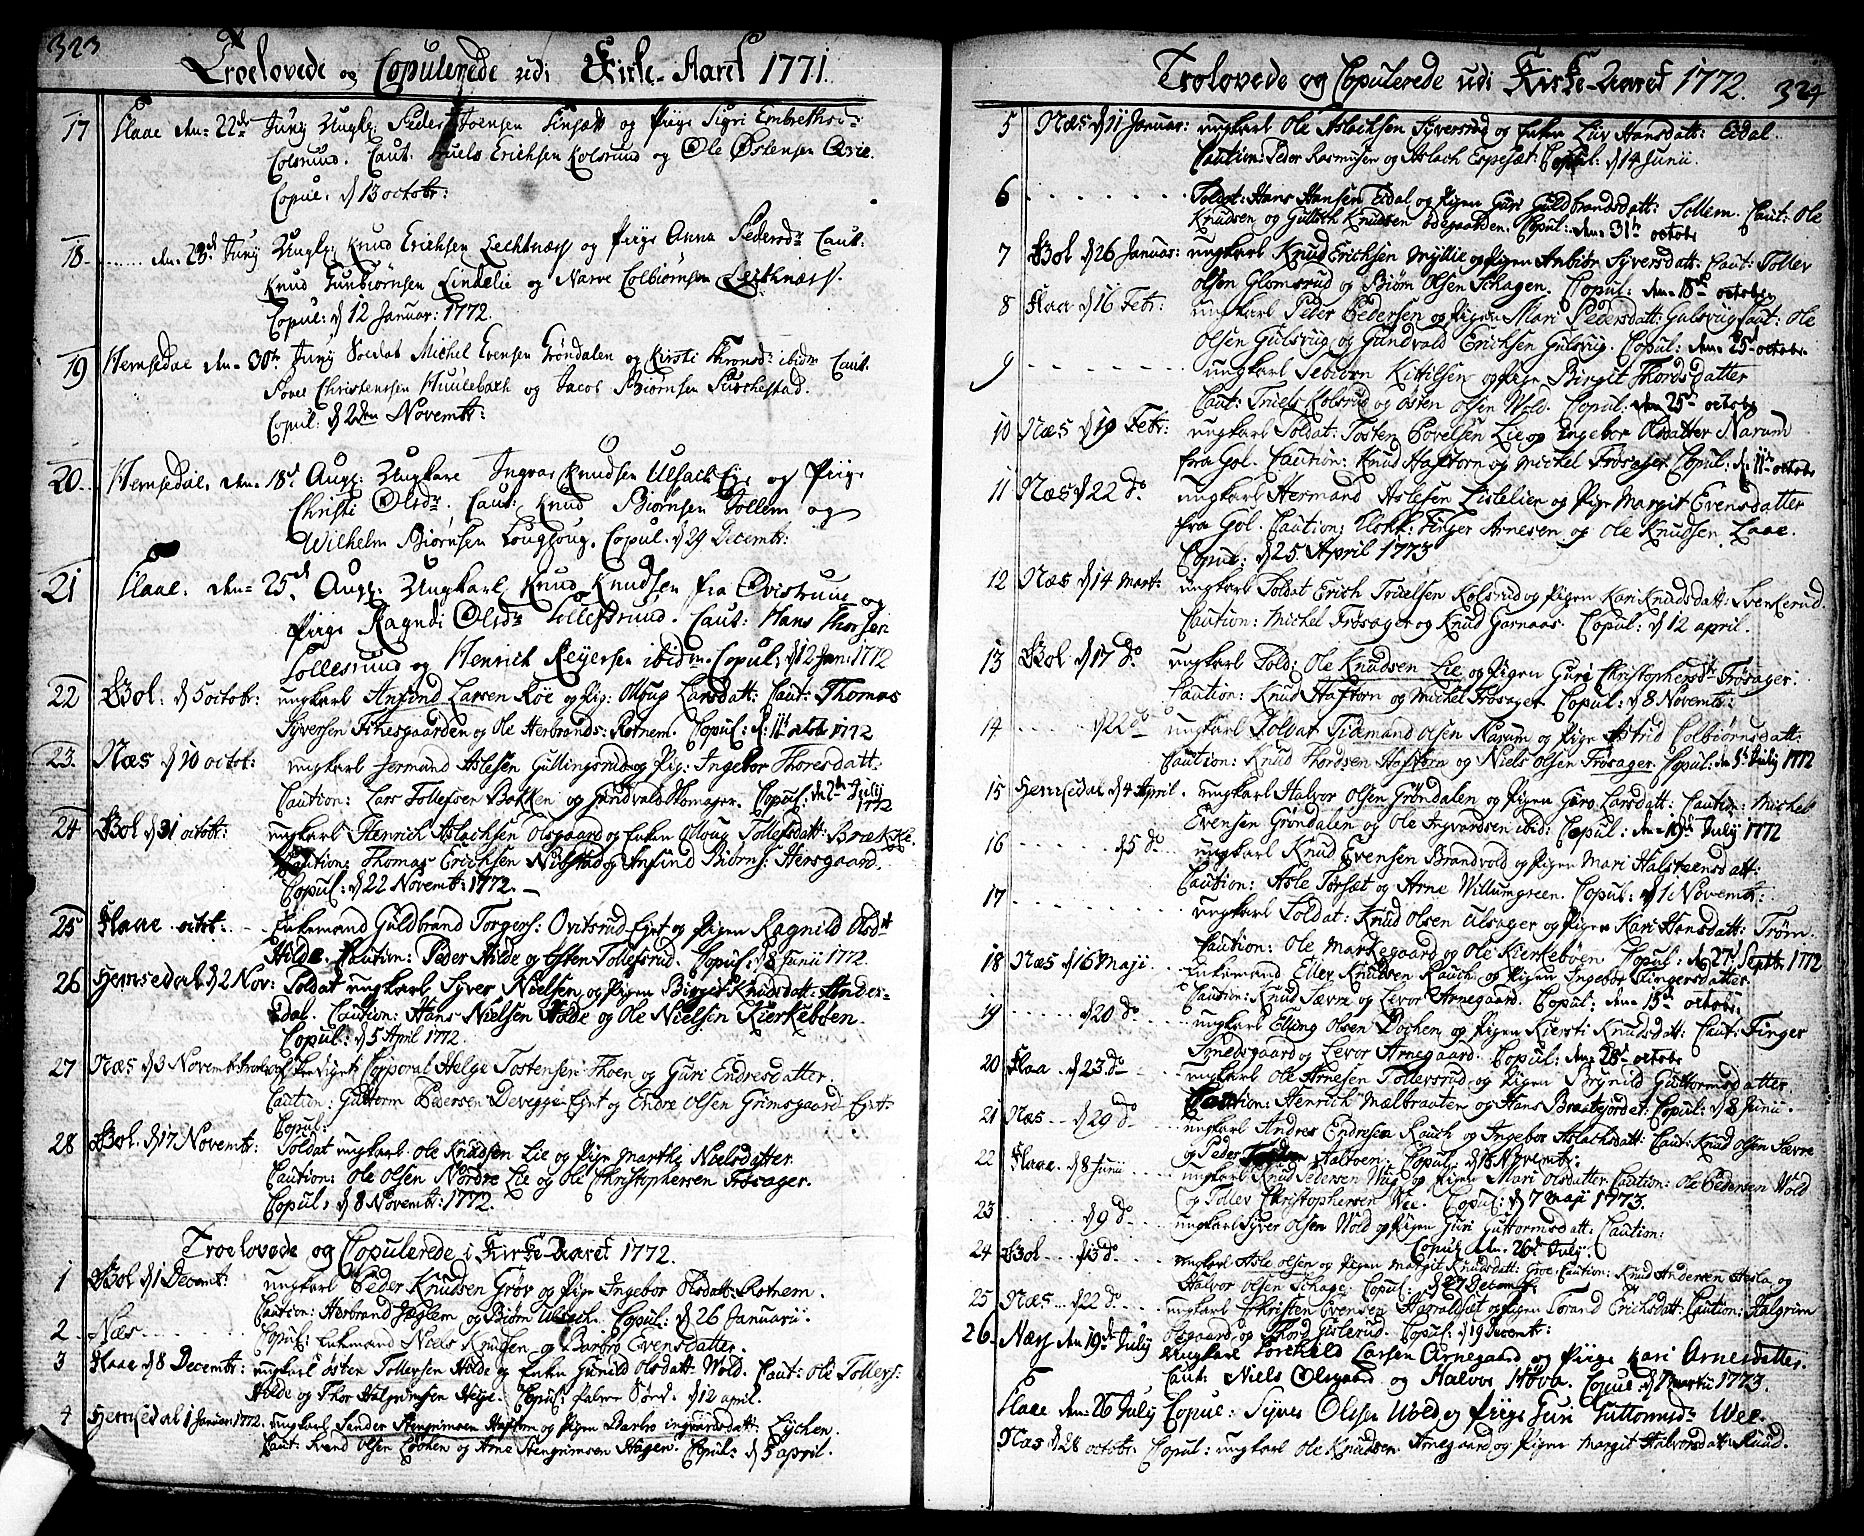 323
Troelovede og Copulerede udi Kirke-Aaret 1771.
17 Flaae den 22de Juny Ungk: Peder Joensen Finsætt og Pige Sigri Embretsd:
Colsrund. Caut. Truels Erichsen Kolsrund og Ole Østensen
Copul. d 13 octobr:
18 ...... den 23d Juny Ungk: Knud Erichsen Lechtnæss og Pige Anna Pedersdr Caut:
Knud Gunbiørnsen Lindelie og Narve Colbiørnsen Lechnæss.
Copul: d 12 Januar: 1772.
19 Hemsedal den 30te Juny Soldat Michel Evensen Grøndalen og Kirsti Thronsd: ibidm Caut.
Povel Christensen Huulebach og Jacob Biørnsen
Copul: d 2den Novembr:
20 Hemsedal, den 18d Aug: Ungkarl Ingvar Knudsen Ulsach Eje og Pige
Christi Olsdr. Caut: Knud Biørnsen Tollem og
Wilhelm Biørnsen. Copul. d 29 Decembr:
21 Flaae: den 25d Aug: Ungkarl Knud Knudsen fra og
Pige Ragndi Olsdr Tollefsrund. Caut: Hans Thorsen
Tollesrund og Henrich Reyersen ibidm. Copul: d 12 Jan: 1772
22 Gol: d 5 octobr: ungkarl Anfind Larsen Roe og Pig: Olloug Larsdatt: Caut: Thomas
Syversen Fitnesgaarden og Ole Herbrands: Rotnem. Copul: d: 11t octobr 1772
23. Næs d 10 octobr: ungkarl Hermand Aslesen Gullingsrud og Pig: Ingebor Thoresdatt:
Caution: Lars Tollefsen Bakken og Gundvald Thomager. Copul: den 2den July 1772
24 Gol d 31 octobr: ungkarl Henrich Aslachsen Olsgaard og Enken Olloug Tollefsdatt: Brække.
Caution: Thomas Erichsen Nubstad og Anfind Biørns: Hersgaard.
Copul: d 22 Novembr: 1772. —
25 Flaae octobr: Enkemand Guldbrand Torgers: Ovitsrud Ejet og Pigen Ragnild Olsdtt
Hilde. Caution: Peder Hilde og Østen Tollefsrud. Copul: d 8 Junii 1772.
26 Hemsedal d 2 Nov: Soldat ungkarl Syver Nielsen og Pigen Birgit Knudsdatt: Ander-
Edal. Caution: Hans Nielsen Hilde og Ole Nielsen Kierkebøen.
Copul: d 5 April 1772.
27 Næs d 3 Novembr: Corporal Helge Tostensen Thoen og Guri Endresdatter.
Caution: Guttorm Pedersen Devegge Ejet og Endre Olsen Grimsgaard Ejet:
Copul:
28 Gol. d 17 Novembr: Soldat ungkarl. Ole Knudsen Lie og Pige Marthe Nielsdatter
Caution: Ole Olsen Nordre Lie og Ole Christophersen Frøsager.
Copul: d 8 Novembr: 1772.
Troelovede og Copulerede i Kirke-Aaret 1772.
1 Gol d 1 Decembr: ungkarl Peder Knudsen Grøv og Pige Ingebor Olsdatt: Rotnem.
Caution: Herbrand Jæglem og Biørn Ulsach. Copul: d 26 Januarii.
2 Næs...... Copul: Enkemand Niels Knudsen og Barbro Evensdatter.
3 Flaae d 8 Decembr: ungkarl Østen Tollefsen Hilde og Enken Gunild Olsdatt: Wold. Caut: Ole Tollefs:
Hilde og Thor Halgrimsen Heje. Copul: d 12 april.
4 Hemsedal 1 Januar: 1772. ungkarl Sander Stengrimsen Haftorn og Pigen Barbro Ingvarsdatt: Eychen.
Caut: Svend Olsen Eychen og Arne Stengrimsen Stagen. Copul: d 5 april.
Trolovede og Copulerede udi Kirke-Aaret 1772. 324
5 Næs d 11 Januar: ungkarl Ole Aslachsen Syversrud og Enken Liv Hansdatt: Eidal.
Caution: Peder Rasmusen og Aslach Espesæt. Copul: d 14 Junii.
6 ....... Soldat: Hans Hansen Eidal og Pigen Guri Guldbrandsdatt: Sollem. Caut: Ole
Knudsen og Gulleth Knudsen Ødegaarden. Copul: den 31te octobr
7 Gol d 26 Januar: ungkarl Knud Erichsen Myllie og Pigen Anbiør Syversdatt: Caut: Tollev
Olsen Glomsrud og Biørn Olsen Schagen. Copul: den 18de octobr.
8 Flaa d 16 Febr: ungkarl Peder Pedersen og Pigen Mari Pedersdatt: Gulsvug Caut: Ole
Olsen Gulsvug og Gundvald Erichsen Gulsvug. Copul: den 25 octobr.
9 ....... ungkarl Tebiørn Kittilsen og Pige Birgit Thordsdatter
Caut: Truels Kolsrud og Østen Olsen Wold. Copul: den 25de octobr
10 Næs d 19 Febr: ungkarl Soldat: Tosten Povelsen Lie og Ingebor Olsdatter Narum
fra Gol. Caution: Knud Haftorn og Michel Frøsager. Copul: d 11te octobr
11 Næs d 22 Do. ungkarl Hermand Aslesen Lislelien og Pige Margit Evensdatter
fra Gol. Caution: Klokk: Finger Arnesen og Ole Knudsen Laae.
Copul: d 25 April 1773
12 Næs d 14 Mart: ungkarl Soldat Erich Truelsen Kolsrud og Pigen Kari Knudsdatt: Svenkerud.
Caution: Michel Frøsager og Knud Garnaas. Copul: d 12 april.
13 Gol d 17 Do ungkarl Sold: Ole Knudsen Lie og Pigen Guri Christophersdr Frøsager.
Caution: Knud Haftorn og Michel Frøsager. Copul: d 8 Novembr:
14 d 22 do ungkarl Soldat Tidemand Olsen Narum og Pige Astrid Colbiørnsdatt:
Caution: Knud Thordsen Haftorn og Niels Olsen Frøsager. Copul: den 5te July 1772
15 Hemsedal d 4 April. ungkarl Halvor Olsen Grøndalen og Pigen Guro Larsdatt: Caution: Michel
Evensen Grøndalen og Ole Ingvardsen ibid: Copul: den 19de July 1772
16 ...... d 5 do ... ungkarl Knud Evensen Brandvold og Pigen Mari Halsteensdatt:
Caution: Asle Torsæt og Arne Willumgreen. Copul: d 1 Novembr:
17 ....... ungkarl Soldat: Knud Olsen Ulsager og Pigen Kari Hansdatt: Trøm.
Caution: Ole Markegaard og Ole Kierkebøen. Copul: d 27d Septbr. 1772
18 Næs d 16 Maji. Enkemand Ellev Knudsen Rauch og Pigen Ingebor Fingersdatter.
Caution: Knud Sævre og Levor Arnegaard. Copul: den 15de octobr.
19 ..... d 20 Do ungkarl Elling Olsen Dochen og Pigen Kiersti Knudsdatt: Caut: Finger
Synedsgaard og Levor Arnegaard. Copul: den 28de octobr
20 Flaa. d 23 Do ungkarl Ole Arnesen Tollefsrud og Pigen Brynild Guttormsdatter
Caution: Henrich Mælbraaten og Hans Braatejordet: Copul: d 8 Junii.
21 Næs... d 29 Do ungkarl Andres Endresen Rauch og Ingebor Aslachsdatt: Caut: Knud Olsen Sævre
og Peder Haltoen. Copul: d 15 Novembr:
22 Flaae. d 8 Junii ungkarl Knud Petersen Wiig og Pigen Mari Olsdatter. Caution: Ole Pedersen Wold
og Tollev Christophersen Wee. Copul: d 7 Maji 1773.
23 ..... d 9 do ungkarl Syver Olsen Wold og Pigen Guri Guttormsdatt: Caution:
Copul: den 26de July.
24 Gol.. d 13 do ungkarl Asle Olsen og Pigen Margit Knudsdatt: Groe. Caution: Knud Andersen Hesla og
Halvor Olsen Schage. Copul: d 27 Decembr.
25 Næs... d 22 do ungkarl Christen Evensen Harraldset og Pigen Torand Erichsdatt: Caution: Halgrim
Olsgaard og Thord Gislerud. Copul: d 19 Decembr:
26. Næss den 19de July Ungkarl Torekild Larsen Arnegaard og Pige Kari Arnesdatter.
Caut: Niels Olsgaard og Halvor Hova. Copul d 7 Martii 1773.
Flaae den 26 July Copul: Syver Olssen Wold og Pige Guri Guttormsdr Wee.
Næs d 28 octobr. Copul: ungkarl Ole Knudsen Arnegaard og Pigen Margit Halvorsdatt: Ruud.